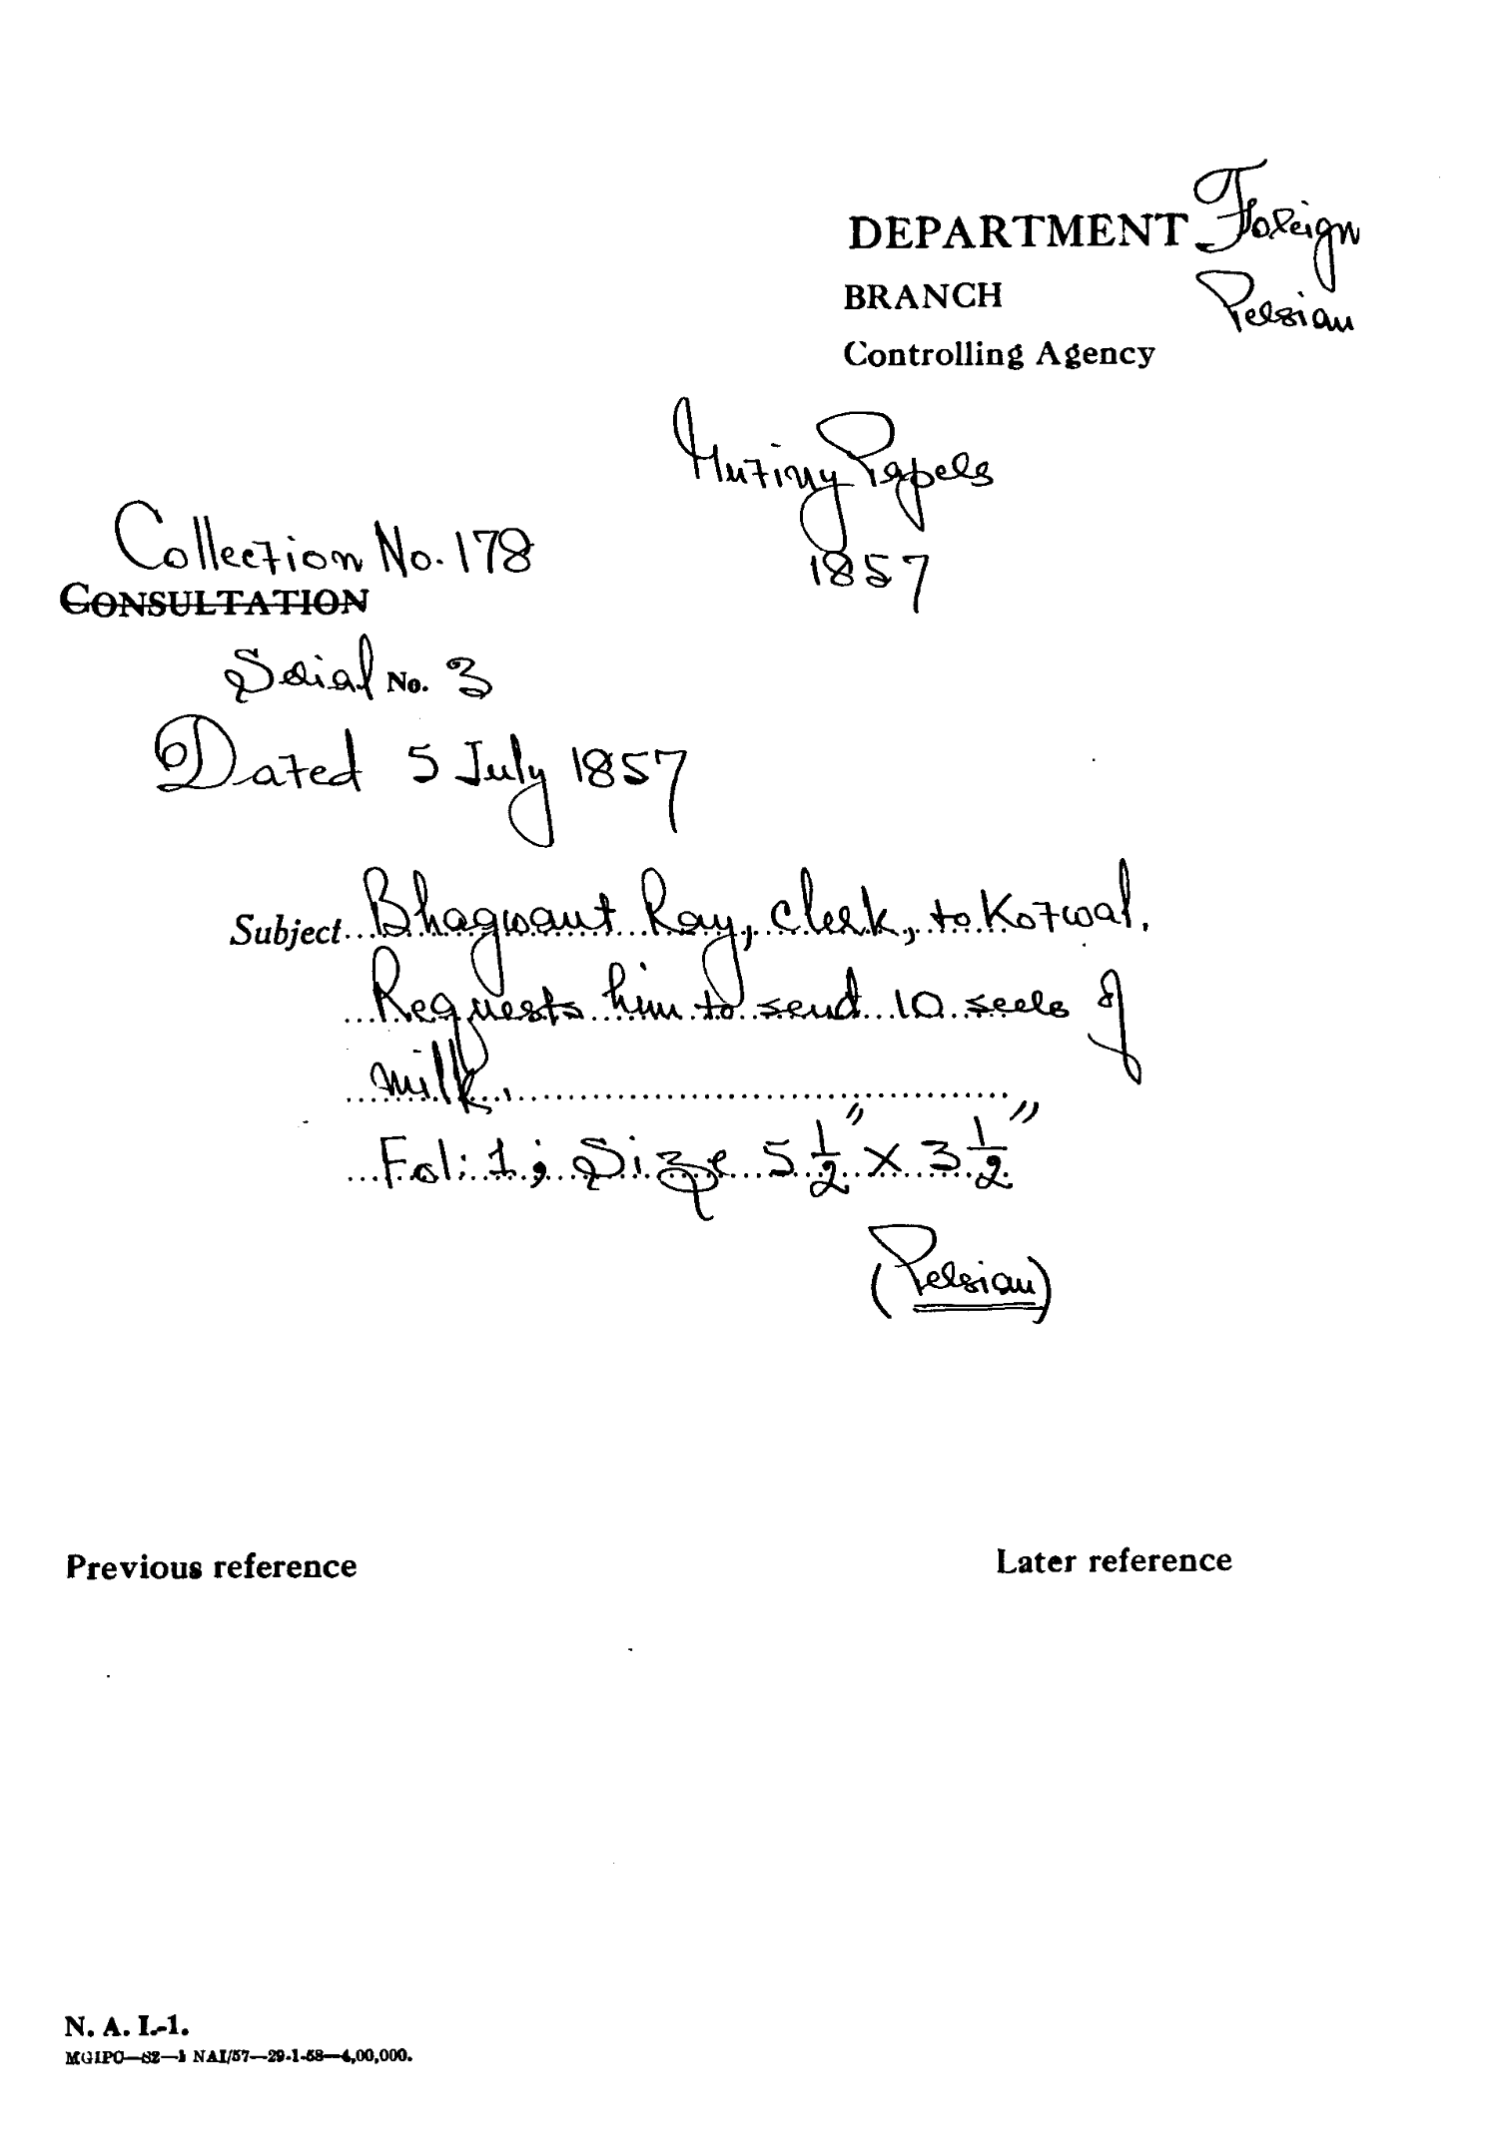 DEPARTMENT Foreign
BRANCH Persian
Controlling Agency
Mutiny Papers
1857
Collection No. 178
CONSULTATION
Serial No. 3
Dated 5 July 1857
Subject Bhagwant Ray, clerk, to Kotwal.
Requests him to send 10 seers of
milk.
Fol: 1; Size 5 1/2" x 3 1/2"
(Persian)
Previous reference
Later reference
N. A. I.-1.
MGIPC—S2—1 NAI/57—29-1-58—4,00,000.